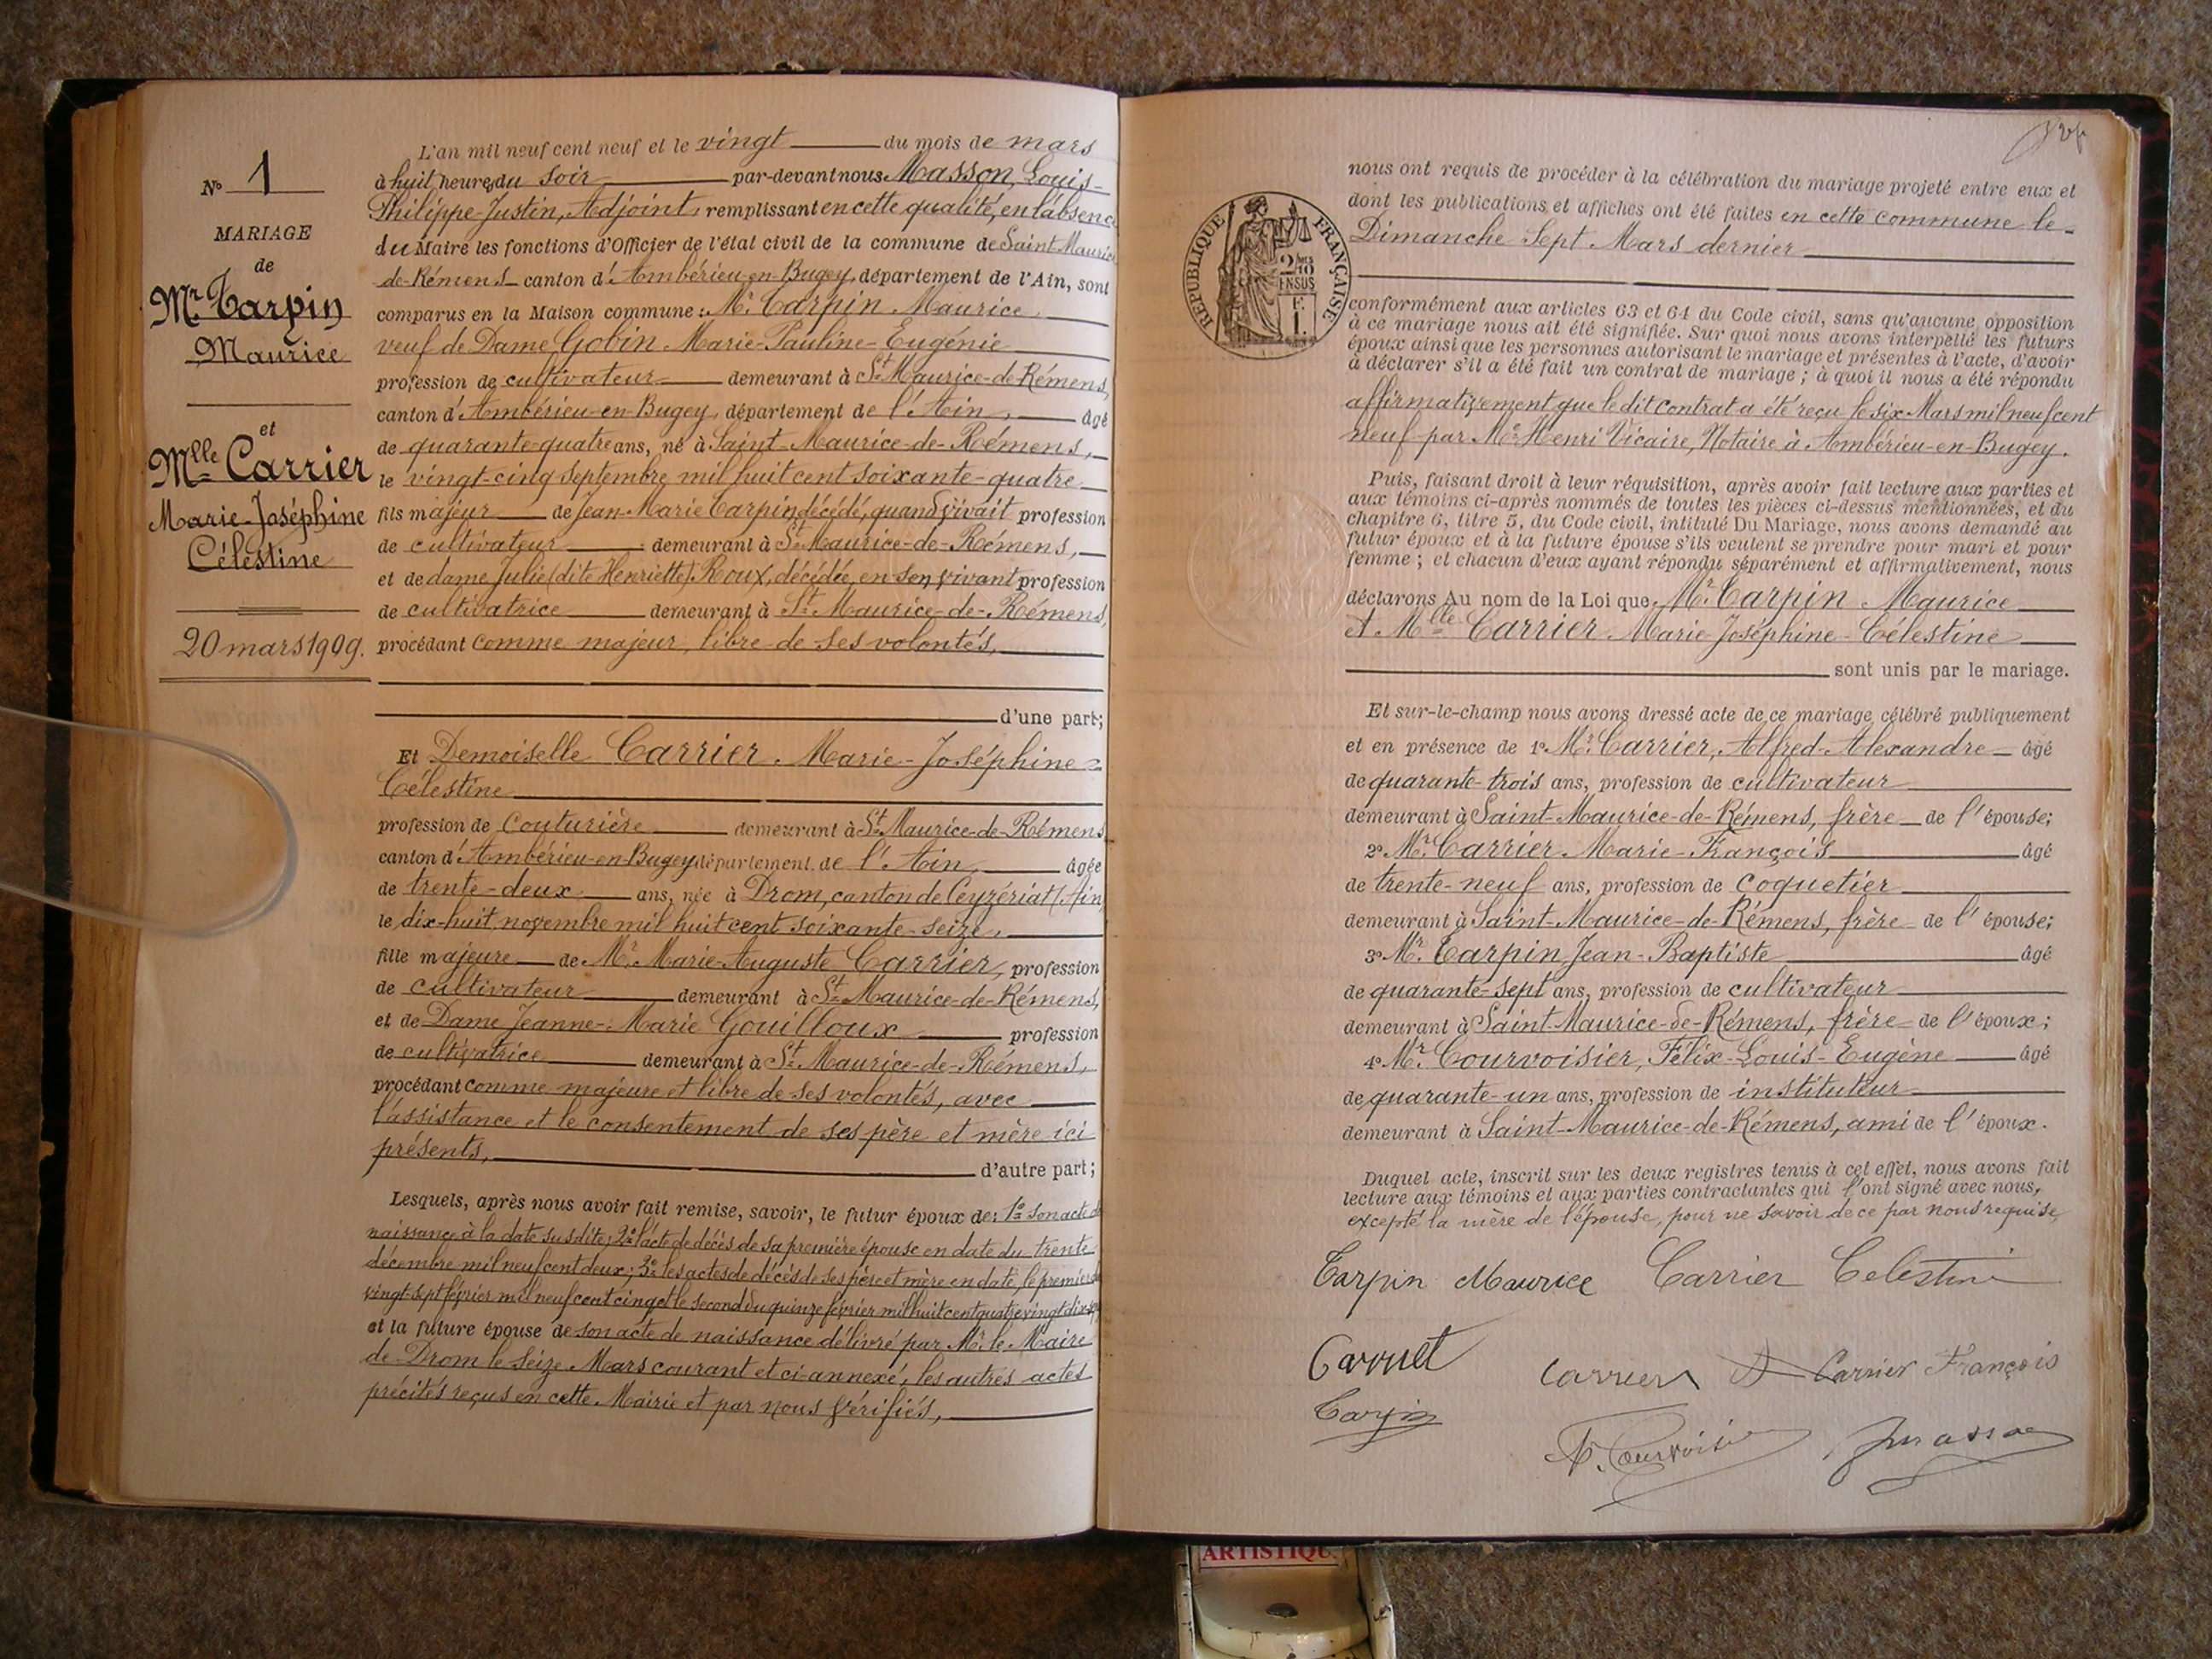 N° 1
MARIAGE
de
Mr. Tarpin
Maurice
et
Mlle Carrier
Marie-Joséphine
Célestine
20 mars 1909.
L'an mil neuf cent neuf et le vingt du mois de mars
à huit heures du soir par-devant nous Masson, Louis-
Philippe-Justin, Adjoint, remplissant en cette qualité, en l'absence
du Maire les fonctions d'Officier de l'état civil de la commune de Saint-Maurice
de-Rémens canton d'Ambérieu-en-Bugey, département de l'Ain, sont
comparus en la Maison commune: Mr. Tarpin Maurice
veuf de Dame Gobin Marie-Pauline-Eugénie
profession de cultivateur demeurant à St. Maurice-de-Rémens,
canton d'Ambérieu-en-Bugey, département de l'Ain, âgé
de quarante-quatre ans, né à Saint-Maurice-de-Rémens,
le vingt-cinq septembre mil huit cent soixante-quatre
fils majeur de Jean-Marie Tarpin décédé, quand vivait profession
de cultivateur demeurant à St. Maurice-de-Rémens,
et de dame Julie (dite Henriette) Roux, décédée, en son vivant profession
de cultivatrice demeurant à St. Maurice-de-Rémens,
procédant comme majeur, libre de ses volontés,
d'une part;
Et Demoiselle Carrier. Marie-Joséphine-
Célestine
profession de couturière demeurant à St. Maurice-de-Rémens
canton d'Ambérieu-en-Bugey département de l'Ain, âgée
de trente-deux ans, née à Drom, canton de Ceyzériat (Ain)
le dix-huit novembre mil huit cent soixante-seize,
fille majeure de Mr. Marie-Auguste Carrier, profession
de cultivateur demeurant à St. Maurice-de-Rémens,
et de Dame Jeanne-Marie Gouilloux profession
de cultivatrice demeurant à St. Maurice-de-Rémens,
procédant comme majeure et libre de ses volontés, avec
l'assistance et le consentement de ses père et mère ici
présents, d'autre part;
Lesquels, après nous avoir fait remise, savoir, le futur époux de: 1° son acte de
naissance à la date susdite; 2° l'acte de décès de sa première épouse en date du trente
décembre mil neuf cent deux; 3° les actes de décès de ses père et mère en date, le premier du
vingt-sept février mil neuf cent cinq et le second du quinze février mil huit cent quatre vingt
et la future épouse de son acte de naissance délivré par Mr. le Maire
de Drom le seize Mars courant et ci-annexé, les autres actes
précités reçus en cette Mairie et par nous vérifiés,
nous ont requis de procéder à la célébration du mariage projeté entre eux et
dont les publications et affiches ont été faites en cette commune le
Dimanche Sept Mars dernier
RÉPUBLIQUE FRANÇAISE
2/10
EN SUS
F
1.
conformément aux articles 63 et 64 du Code civil, sans qu'aucune opposition
à ce mariage nous ait été signifiée. Sur quoi nous avons interpellé les futurs
époux ainsi que les personnes autorisant le mariage et présentes à l'acte, d'avoir
à déclarer s'il a été fait un contrat de mariage; à quoi il nous a été répondu
affirmativement que le dit contrat a été reçu le six Mars mil neuf cent
neuf par Me. Henri Vicaire, Notaire à Ambérieu-en-Bugey.
Puis, faisant droit à leur réquisition, après avoir fait lecture aux parties et
aux témoins ci-après nommés de toutes les pièces ci-dessus mentionnées, et du
chapitre 6, titre 5, du Code civil, intitulé Du Mariage, nous avons demandé au
futur époux et à la future épouse s'ils veulent se prendre pour mari et pour
femme; et chacun d'eux ayant répondu séparément et affirmativement, nous
déclarons Au nom de la Loi que Mr. Tarpin Maurice
et Mlle Carrier Marie Joséphine-Célestine
sont unis par le mariage.
Et sur-le-champ nous avons dressé acte de ce mariage célébré publiquement
et en présence de 1° Mr. Carrier, Alfred-Alexandre âgé
de quarante-trois ans, profession de cultivateur
demeurant à Saint-Maurice-de-Rémens, frère de l'épouse;
2° Mr. Carrier Marie-François âgé
de trente-neuf ans, profession de coquetier
demeurant à Saint-Maurice-de-Rémens, frère de l'épouse;
3° Mr. Tarpin Jean-Baptiste âgé
de quarante-sept ans, profession de cultivateur
demeurant à Saint-Maurice-de-Rémens, frère de l'époux;
4° Mr. Courvoisier, Félix-Louis-Eugène âgé
de quarante-un ans, profession de instituteur
demeurant à Saint-Maurice-de-Rémens, ami de l'époux.
Duquel acte, inscrit sur les deux registres tenus à cet effet, nous avons fait
lecture aux témoins et aux parties contractantes qui l'ont signé avec nous,
excepté la mère de l'épouse, pour ne savoir de ce par nous requise,
Tarpin Maurice Carrier Celestine
Carrier A Carrier François
Tarpin
F. Courvoisier Masson
ARTISTIQU